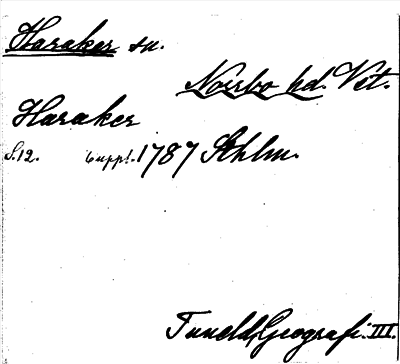 Haraker sn.
Norrbo hd. Vstm.
Haraker
S.12. Suppl. 1787 Sthlm.
Tuneld, Geografi. III.